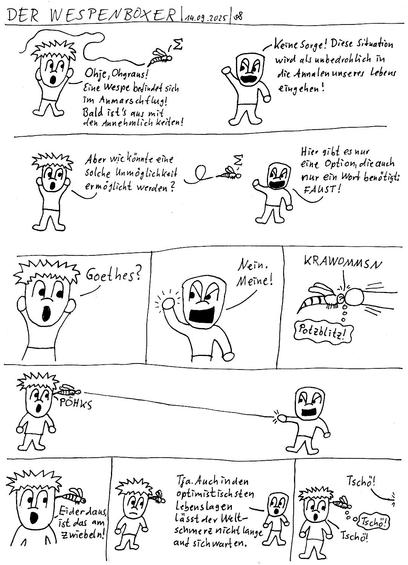 DER WESPENBOXER | 14.09.2025 | S8
Σ
Ohje, Ohgraus!
Eine Wespe befindet sich
im Anmarschflug!
Bald ist's aus mit
den Annehmlichkeiten!
Keine Sorge! Diese Situation
wird als unbedrohlich in
die Annalen unseres Lebens
eingehen!
Aber wie könnte eine
solche Unmöglichkeit
ermöglicht werden?
Σ
Hier gibt es nur
eine Option, die auch
nur ein Wort benötigt:
FAUST!
Goethes?
Nein.
Meine!
KRAWOMMSN
Potzblitz!
PÖHKS
Eiderdaus,
ist das am
zwiebeln!
Tja. Auch in den
optimistischsten
Lebenslagen
lässt der Welt-
schmerz nicht lange
auf sich warten.
Tschö!
Tschö!
Tschö!